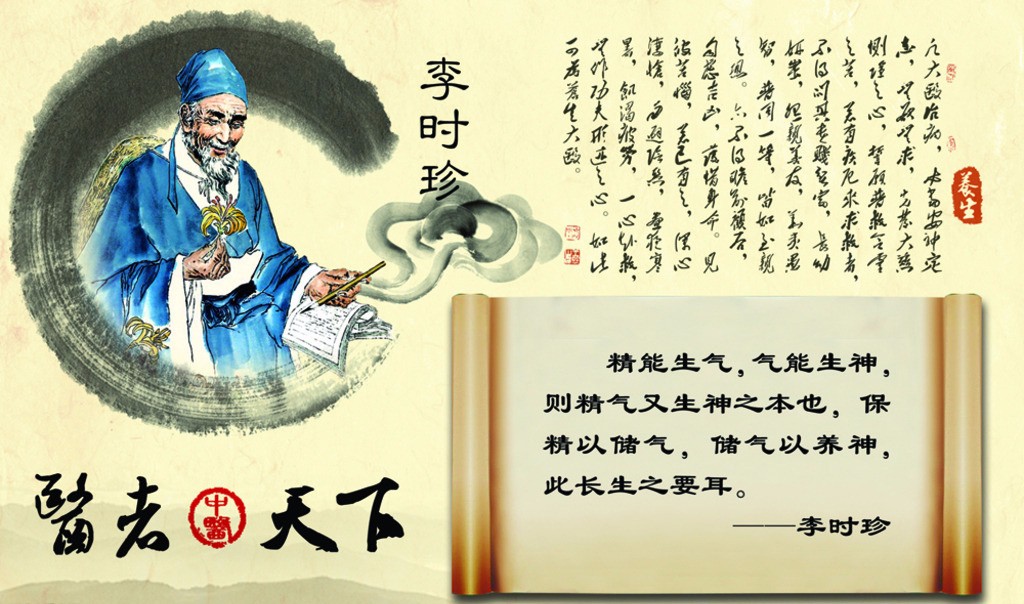 李时珍
凡大醫治病，必當安神定
志，無欲無求，先發大慈
惻隱之心，誓願普救含靈
之苦，若有疾厄來求救者，
不得問其貴賤貧富，長幼
妍蚩，怨親善友，華夷愚
智，普同一等，皆如至親
之想。亦不得瞻前顧後，
自慮吉凶，護惜身命。見
彼苦惱，若己有之，深心
淒愴，勿避險巇，晝夜寒
暑，飢渴疲勞，一心赴救，
無作功夫形迹之心。如此
可為蒼生大醫。
養生
精能生气，气能生神，
则精气又生神之本也，保
精以储气，储气以养神，
此长生之要耳。
——李时珍
醫者中醫天下